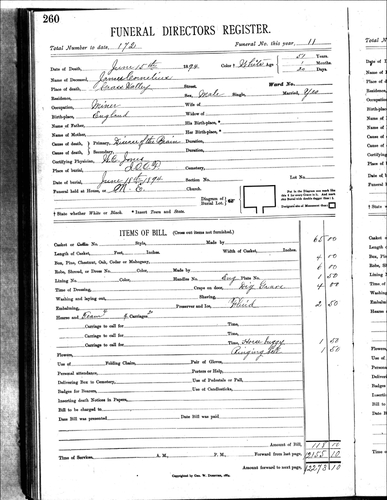 260
FUNERAL DIRECTORS REGISTER.
Total Number to date, 172 Funeral No. this year, 11
Date of Death, June 15th 1894 Color † White Age 51 Years
1 Months
20 Days
Name of Deceased, James Cornelius
Place of death, Grass Valley Street, Ward No.
Residence, Sex, Male Single, Married, Yes
Occupation, Miner Wife of
Birth-place, England Widow of
Name of Father, His Birth-place, *
Name of Mother, Her Birth-place, *
Cause of death, Primary, Disease of the Brain Duration,
Cause of death, Secondary, Duration,
Certifying Physician, Jones
Place of burial, Cemetery,
Date of burial, June 18th 1894. Section No. Lot No.
Funeral held at House, or M. E. Church.
Diagram of Burial Lot.
† State whether White or Black. * Insert Town and State.
ITEMS OF BILL. (Cross out items not furnished.)
Casket or Coffin No. Style, Made by 65 00
Length of Casket, Feet, Inches. Width of Casket, Inches.
Box, Pine, Chestnut, Oak, Collar or Mahogany 4 00
Robe, Shroud, or Dress No. Color, Made by 6 00
Lining No. Color, Handles No. Eng Plate No. 1 50
Time of Dressing, Crape on door, Dig Grave 4 00
Washing and laying out, Shaving,
Embalming, Preserver and Ice, Fluid 2 50
Hearse and Team & Carriages
Carriage to call for Time,
Carriage to call for Time,
Carriage to call for Time, Horse buggy 1 50
Flowers, Ringing Bell 1 50
Use of Folding Chairs, Pair of Gloves,
Personal attendance, Porters or Help,
Delivering Box to Cemetery, Use of Pedestals or Pall,
Badges for Bearers, Use of Candlesticks,
Inserting death Notices in Papers,
Bill to be charged to
Date Bill was presented Date Bill was paid
Amount of Bill, 118 10
Time of Services, A. M., P. M., Forward from last page, 12155 10
Amount forward to next page, 12273 10